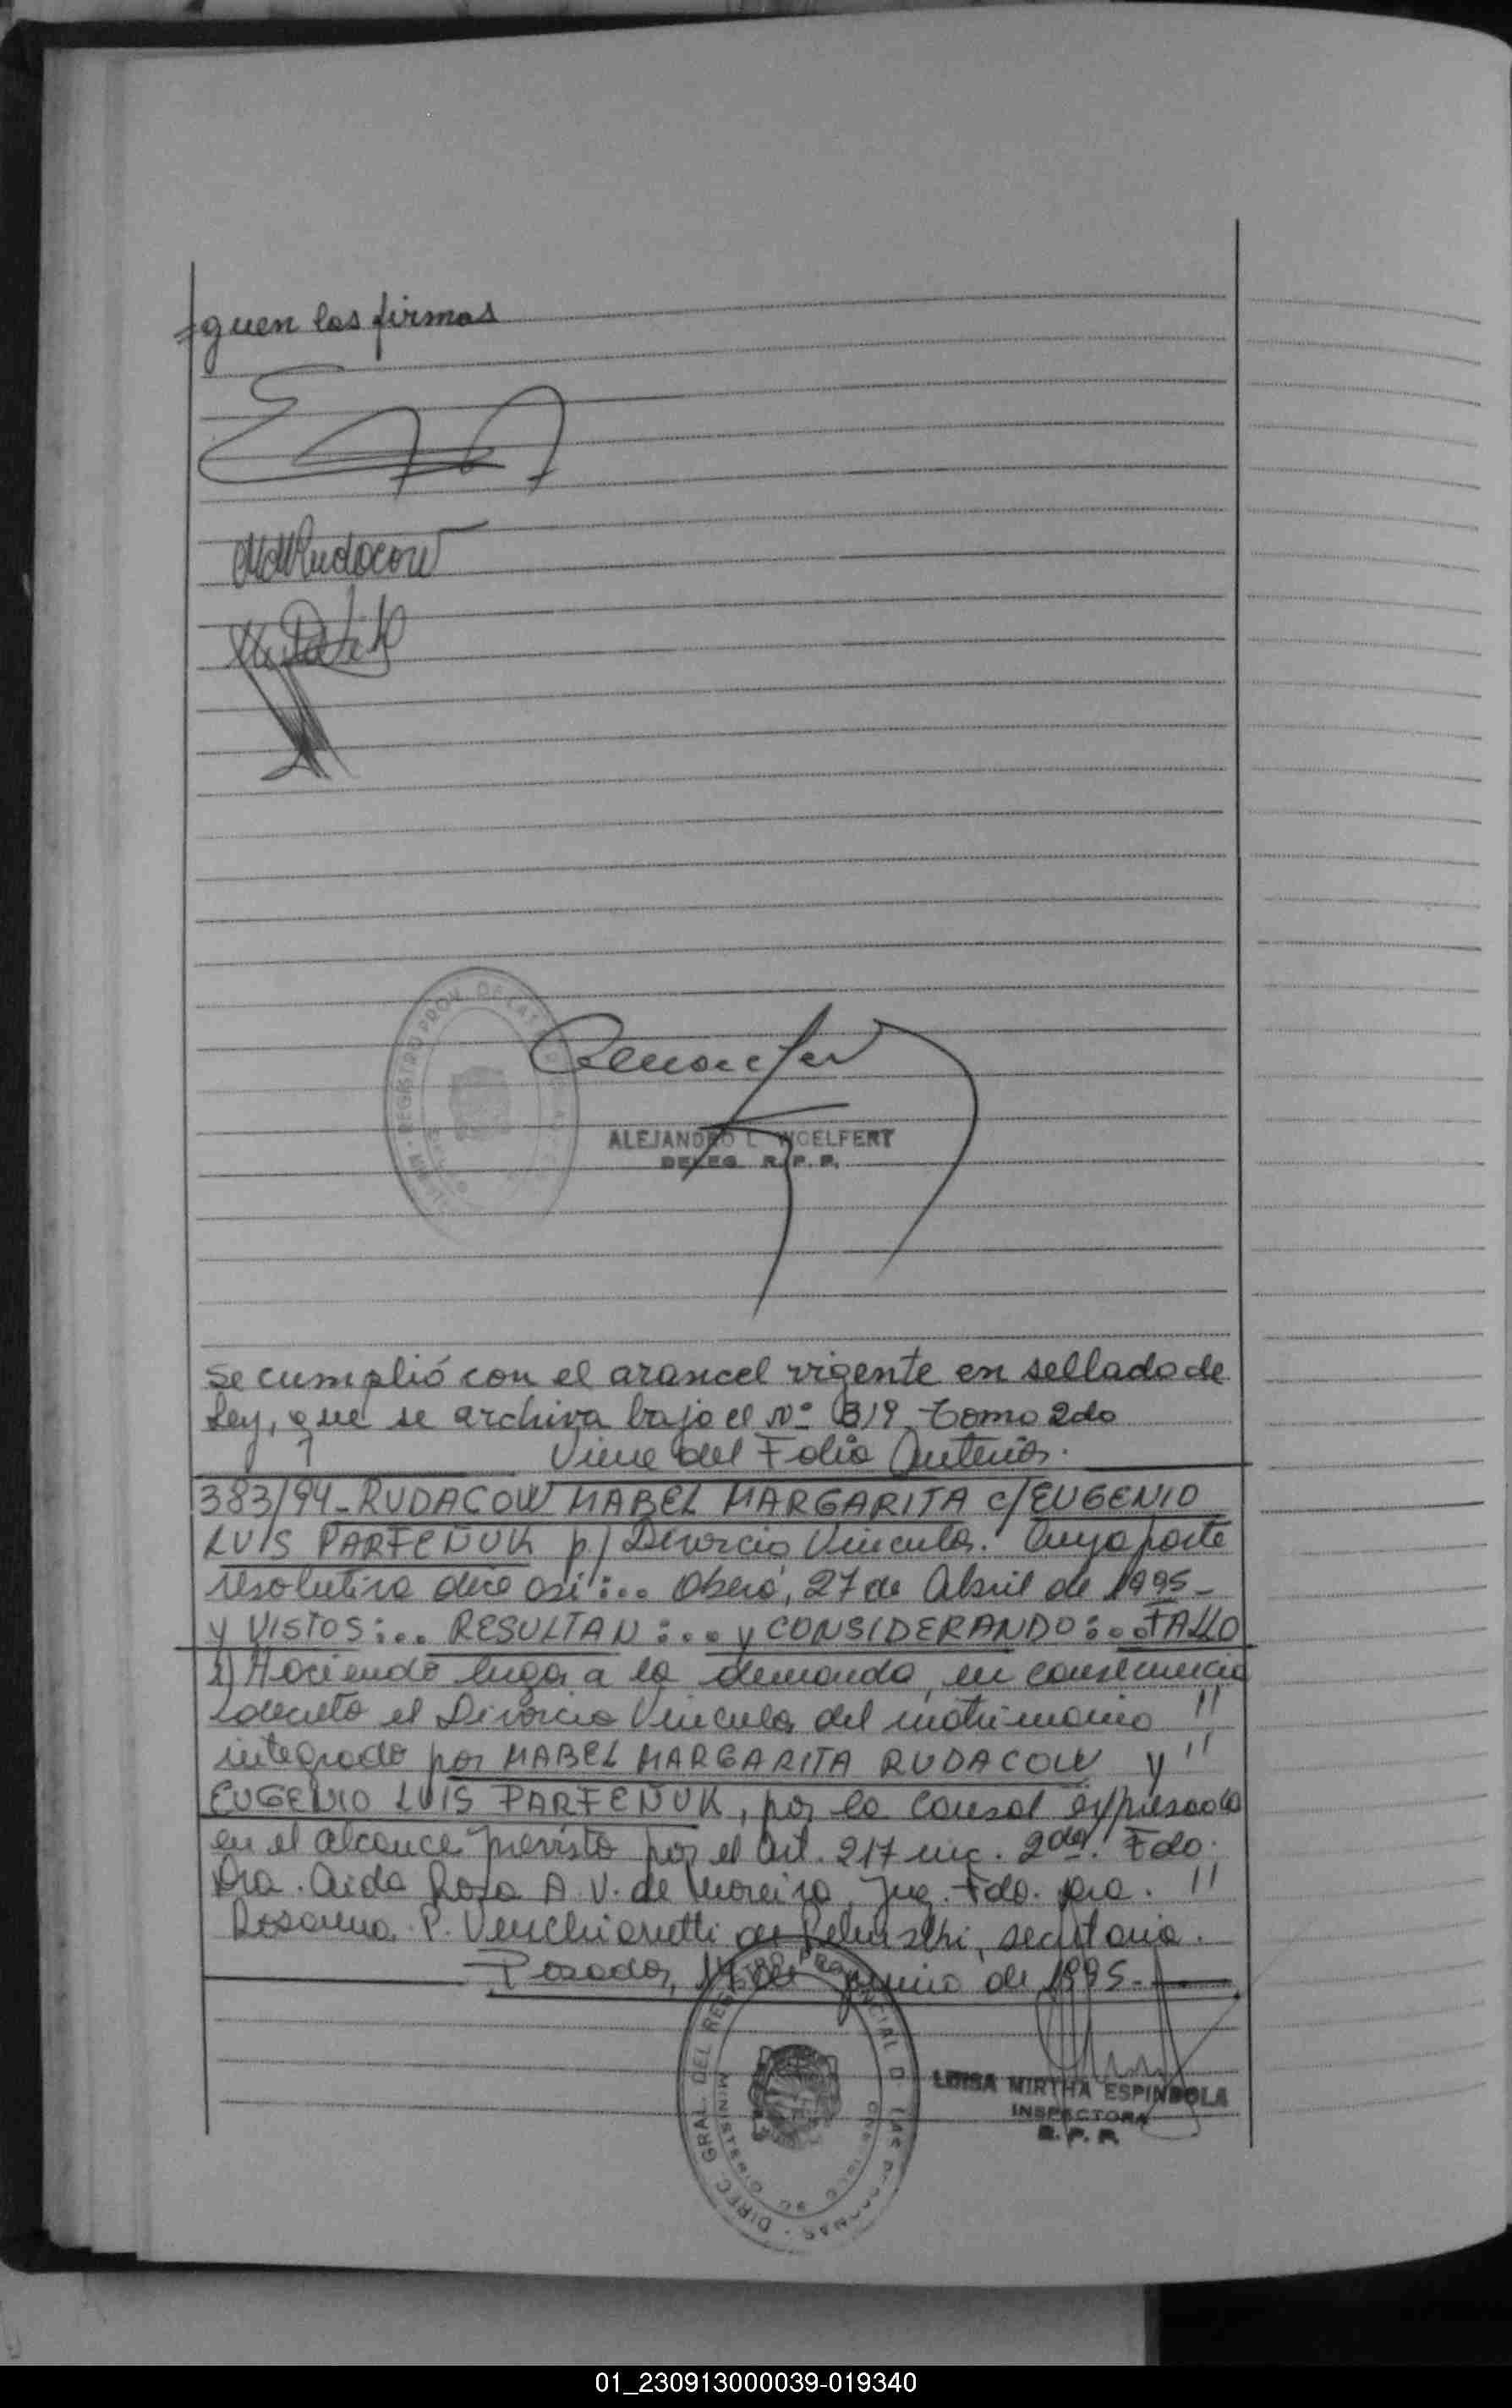 =guen las firmas
MMRudacow
ALEJANDRO L. WOELFERT
DELEG. R. P. P.
Se cumplió con el arancel vigente en sellado de
Ley, que se archiva bajo el Nº 319 Tomo 2do
Viene del Folio Anterior.
383/94-RUDACOW MABEL MARGARITA c/EUGENIO
LUIS PARFEÑUK p/ Divorcio Vincular. Cuya parte
resolutiva dice asi:... Oberá, 27 de Abril de 1995-
y VISTOS:... RESULTAN:... y CONSIDERANDO:... FALLO
1) Haciendo lugar a la demanda, en consecuencia
decreto el Divorcio Vincular del matrimonio "
integrado por MABEL MARGARITA RUDACOW y "
EUGENIO LUIS PARFEÑUK, por la causal expresada
en el alcance previsto por el Art. 217 inc. 2do. Fdo.
Dra. Aida Rosa A. V. de Moreira, Juez. Fdo. Dra. "
Rosanna P. Venchiarutti de, secretaria.
Posadas, 14 de Junio de 1995.-
DIREC. GRAL. DEL REGISTRO PROVINCIAL D. LAS PERSONAS
MINISTERIO DE
LUISA MIRTHA ESPINDOLA
INSPECTORA
R. P. P.
01_230913000039-019340